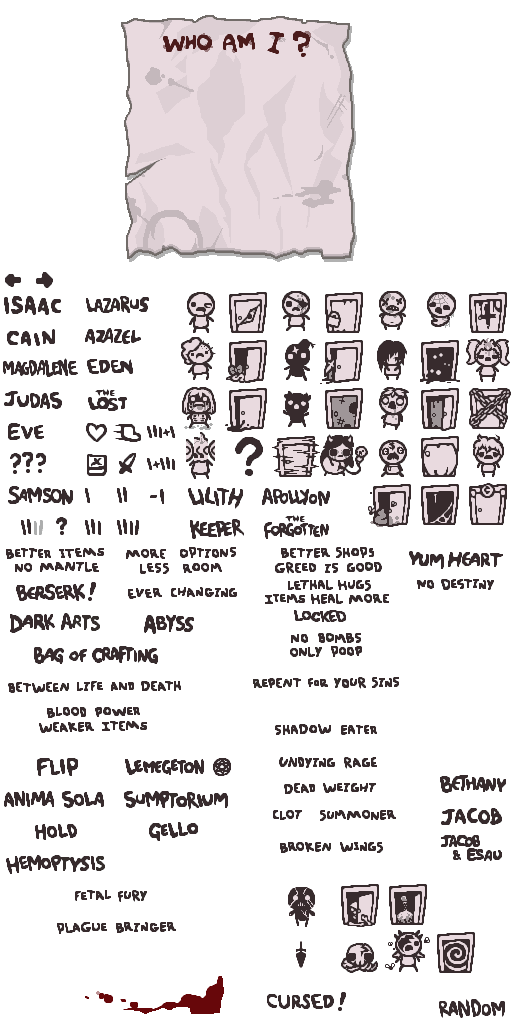 WHO AM I ?
ISAAC LAZARUS
CAIN AZAZEL
MAGDALENE EDEN
JUDAS THE LOST
EVE
???
?
SAMSON LILITH APOLLYON
? KEEPER THE FORGOTTEN
BETTER ITEMS
NO MANTLE
MORE OPTIONS
LESS ROOM
BETTER SHOPS
GREED IS GOOD
YUM HEART
BERSERK!
EVER CHANGING
LETHAL HUGS
ITEMS HEAL MORE
NO DESTINY
LOCKED
DARK ARTS
ABYSS
NO BOMBS
ONLY POOP
BAG OF CRAFTING
BETWEEN LIFE AND DEATH
REPENT FOR YOUR SINS
BLOOD POWER
WEAKER ITEMS
SHADOW EATER
FLIP
LEMEGETON
UNDYING RAGE
DEAD WEIGHT
BETHANY
ANIMA SOLA
SUMPTORIUM
CLOT SUMMONER
JACOB
HOLD
GELLO
BROKEN WINGS
JACOB
& ESAU
HEMOPTYSIS
FETAL FURY
PLAGUE BRINGER
CURSED!
RANDOM